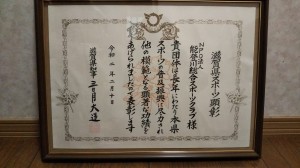 滋賀県スポーツ顕彰
NPO法人
能登川総合スポーツクラブ 様
貴団体は長年にわたり本県
スポーツの普及振興に尽力され
他の模範となる顕著な功績を
あげられましたので表彰します
令和二年二月十日
滋賀県知事 三日月大造